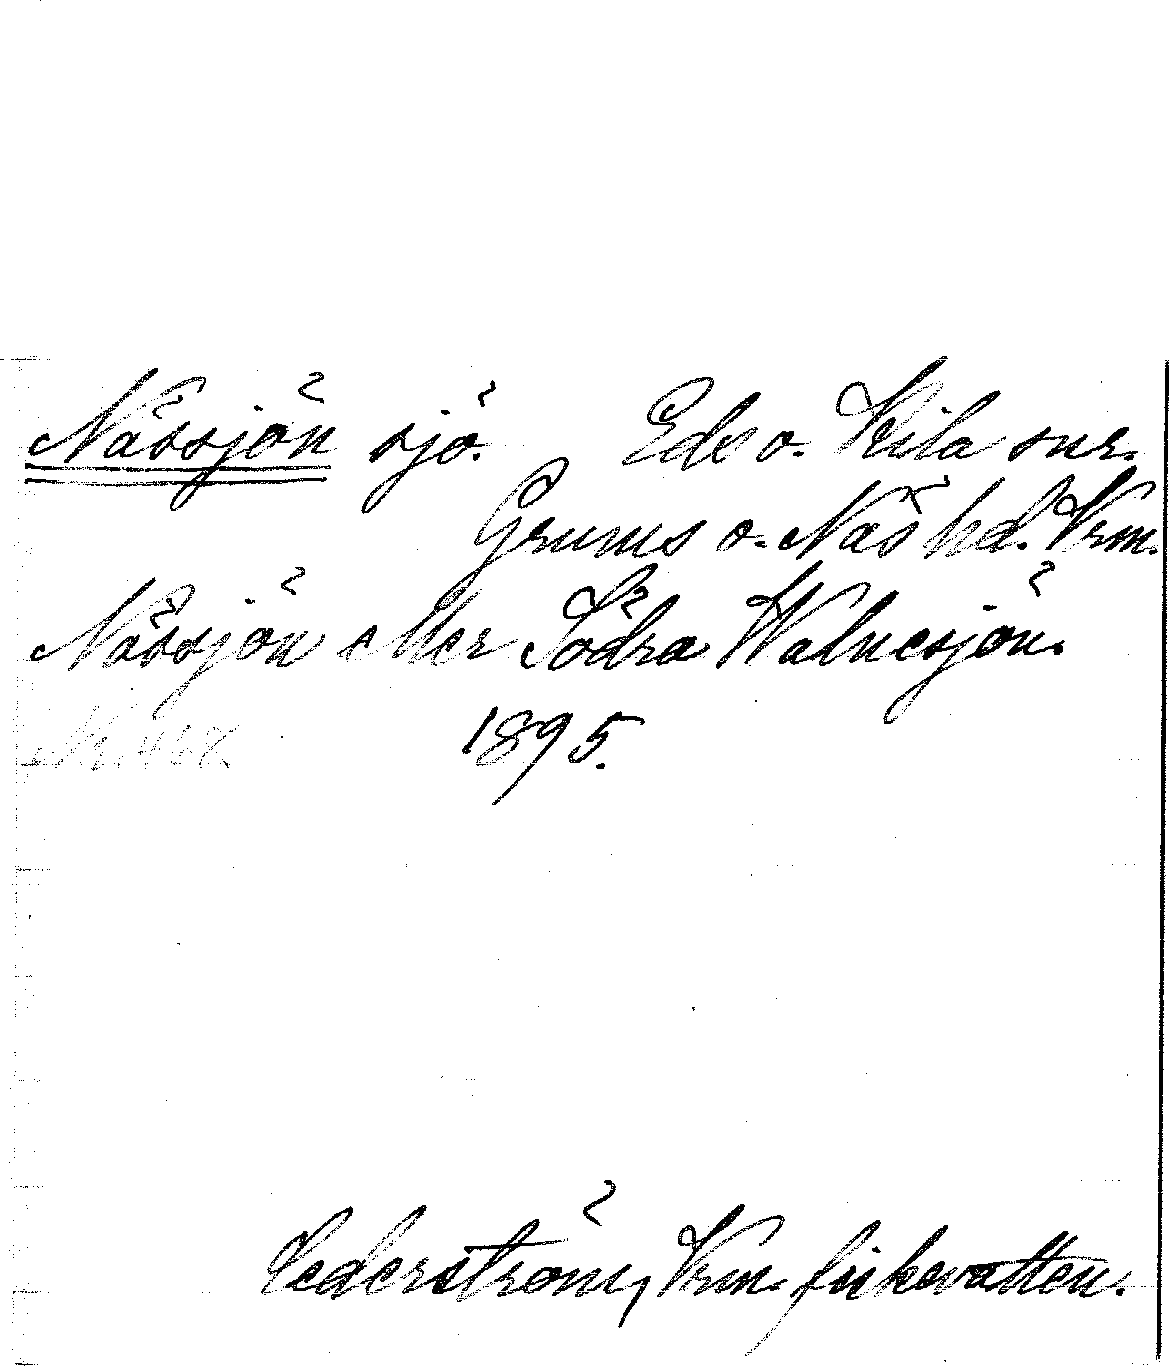 Nässjön sjö. Eds o. Kila snr.
Grums o. Näs hd. Vrm.
Nässjön eller Södra Walnesjön.
Nr. 467. 1895.
Cederström, Vrm. fiskevatten.